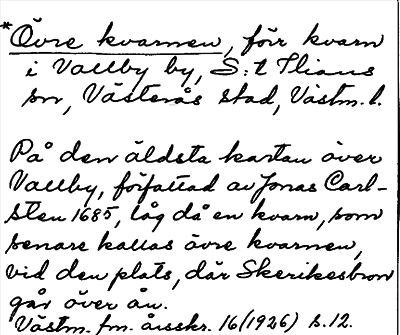 *Övre kvarnen, förr kvarn
i Vallby by, S:t Ilians
sn, Västerås stad, Västm. l.
På den äldsta kartan över
Vallby, författad av Jonas Carl-
sten 1685, låg då en kvarn, som
senare kallas övre kvarnen,
vid den plats, där Skerikesbron
går över ån.
Västm. fm. årsskr. 16 (1926) s. 12.